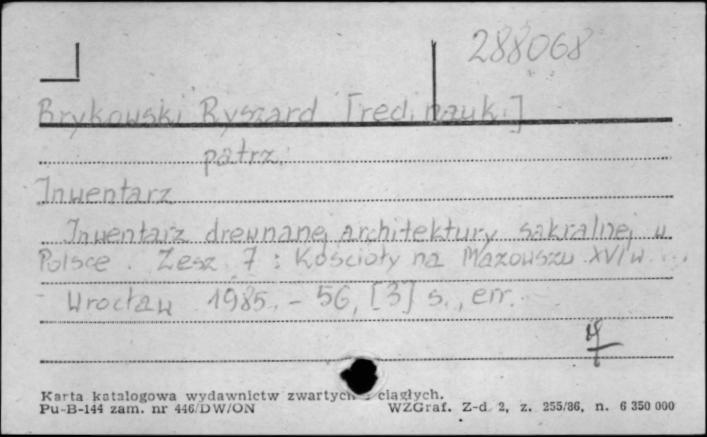 288068
Brykowski Ryszard [red. nauk.]
patrz.
Inwentarz
Inwentarz drewnanej architektury sakralnej w
Polsce. Zesz. 7: Kościoły na Mazowszu XVI w...
Wrocław 1985. - 56, [3] s., err.
Karta katalogowa wydawnictw zwartych i ciągłych.
Pu-B-144 zam. nr 446/DW/ON WZGraf. Z-d 2, z. 255/86, n. 6 350 000